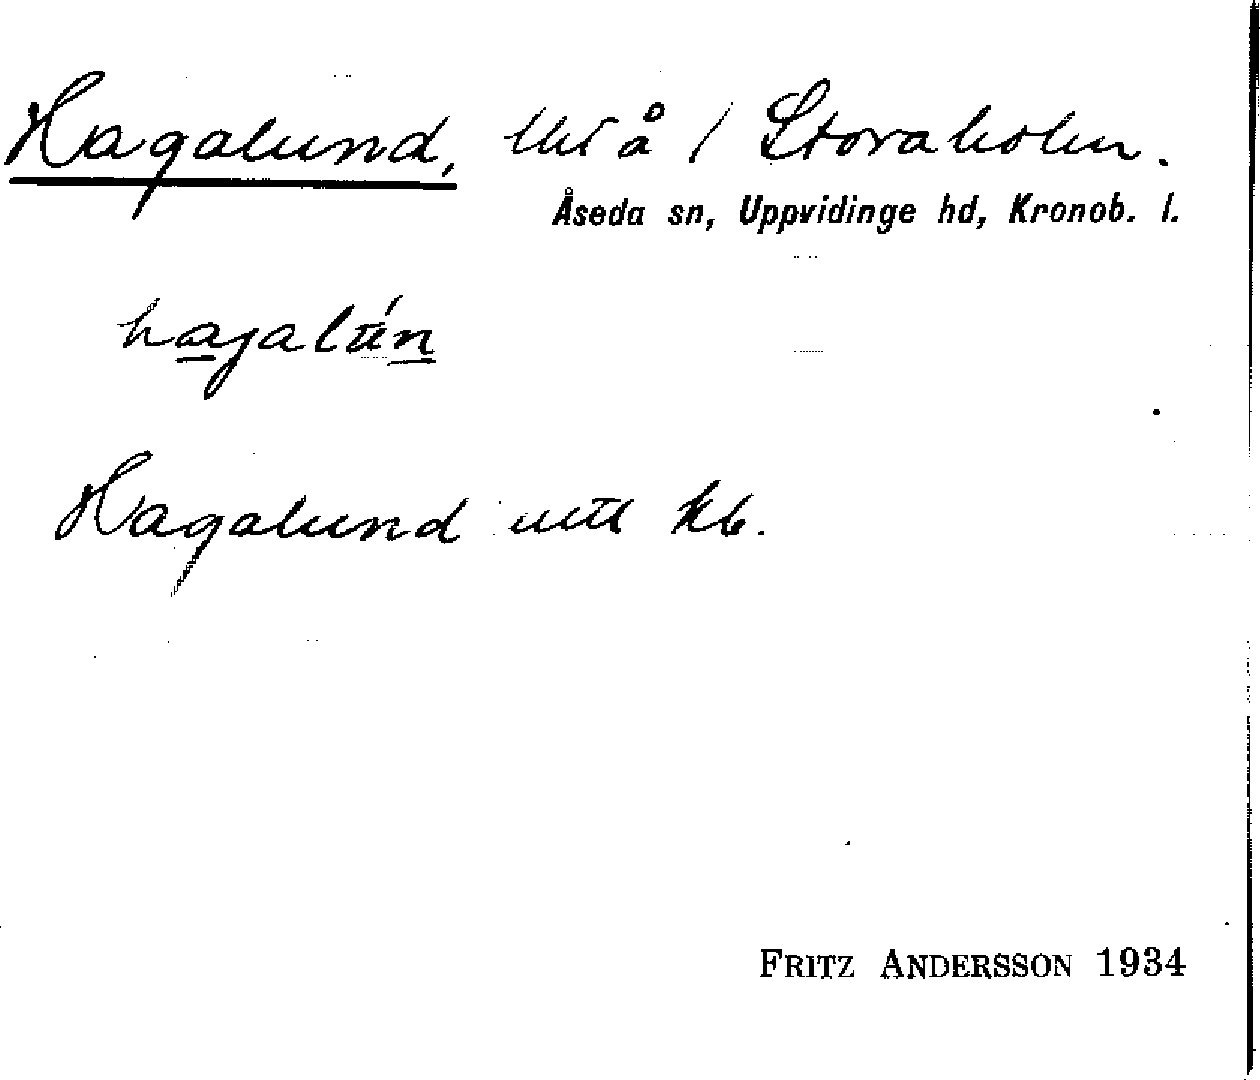 Hagalund, lht å / Storaholm.
Åseda sn, Uppvidinge hd, Kronob. l.
hagalún
Hagalund kb.
FRITZ ANDERSSON 1934